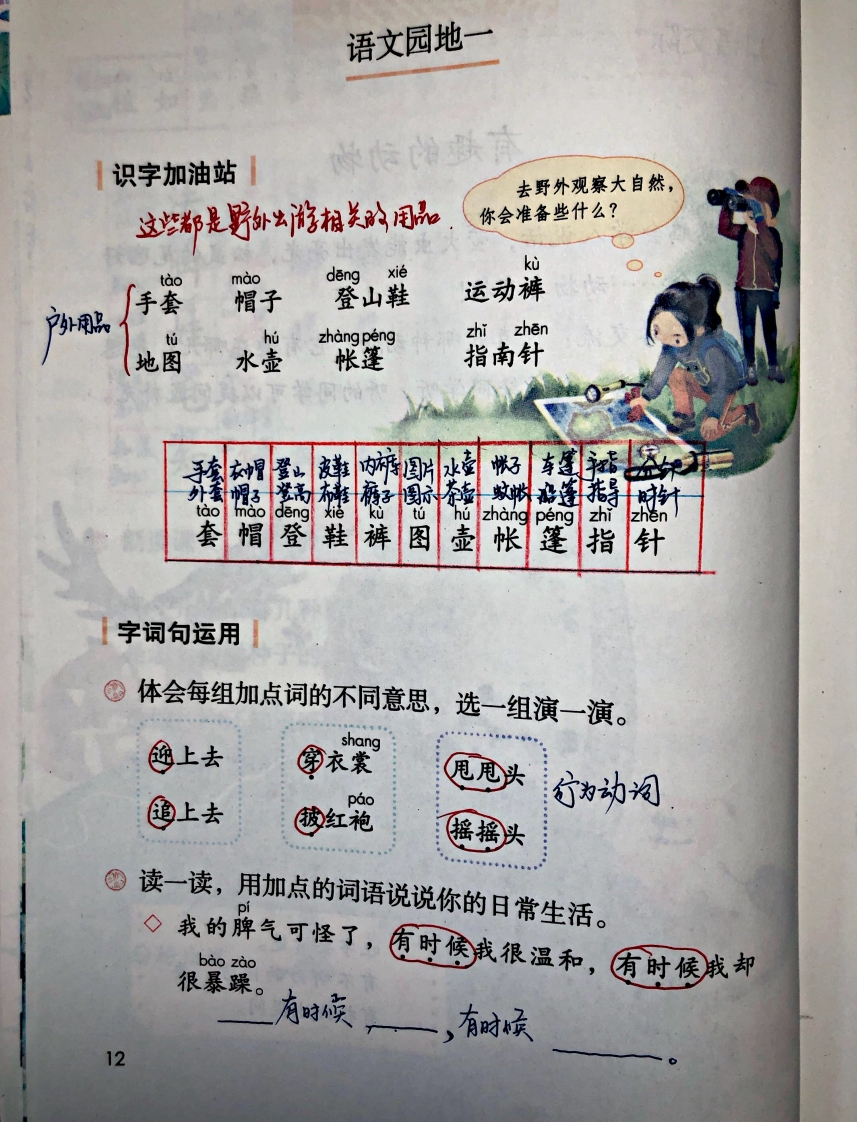 语文园地一
识字加油站
去野外观察大自然，
你会准备些什么？
这些都是野外出游相关的用品.
tào mào dēng xié kù
手套 帽子 登山鞋 运动裤
户外用品
tú hú zhàng péng zhǐ zhēn
地图 水壶 帐篷 指南针
手套 衣帽 登山 皮鞋 内裤 图片 水壶 帐子 车篷 手指 分针
外套 帽子 登高 布鞋 裤子 图示 茶壶 蚊帐 船篷 指导 时针
tào mào dēng xié kù tú hú zhàng péng zhǐ zhēn
套 帽 登 鞋 裤 图 壶 帐 篷 指 针
字词句运用
体会每组加点词的不同意思，选一组演一演。
shang
迎上去 穿衣裳 甩甩头
行为动词
páo
追上去 披红袍 摇摇头
读一读，用加点的词语说说你的日常生活。
pí
我的脾气可怪了，有时候我很温和，有时候我却
bào zào
很暴躁。
___有时候____，有时候______。
12